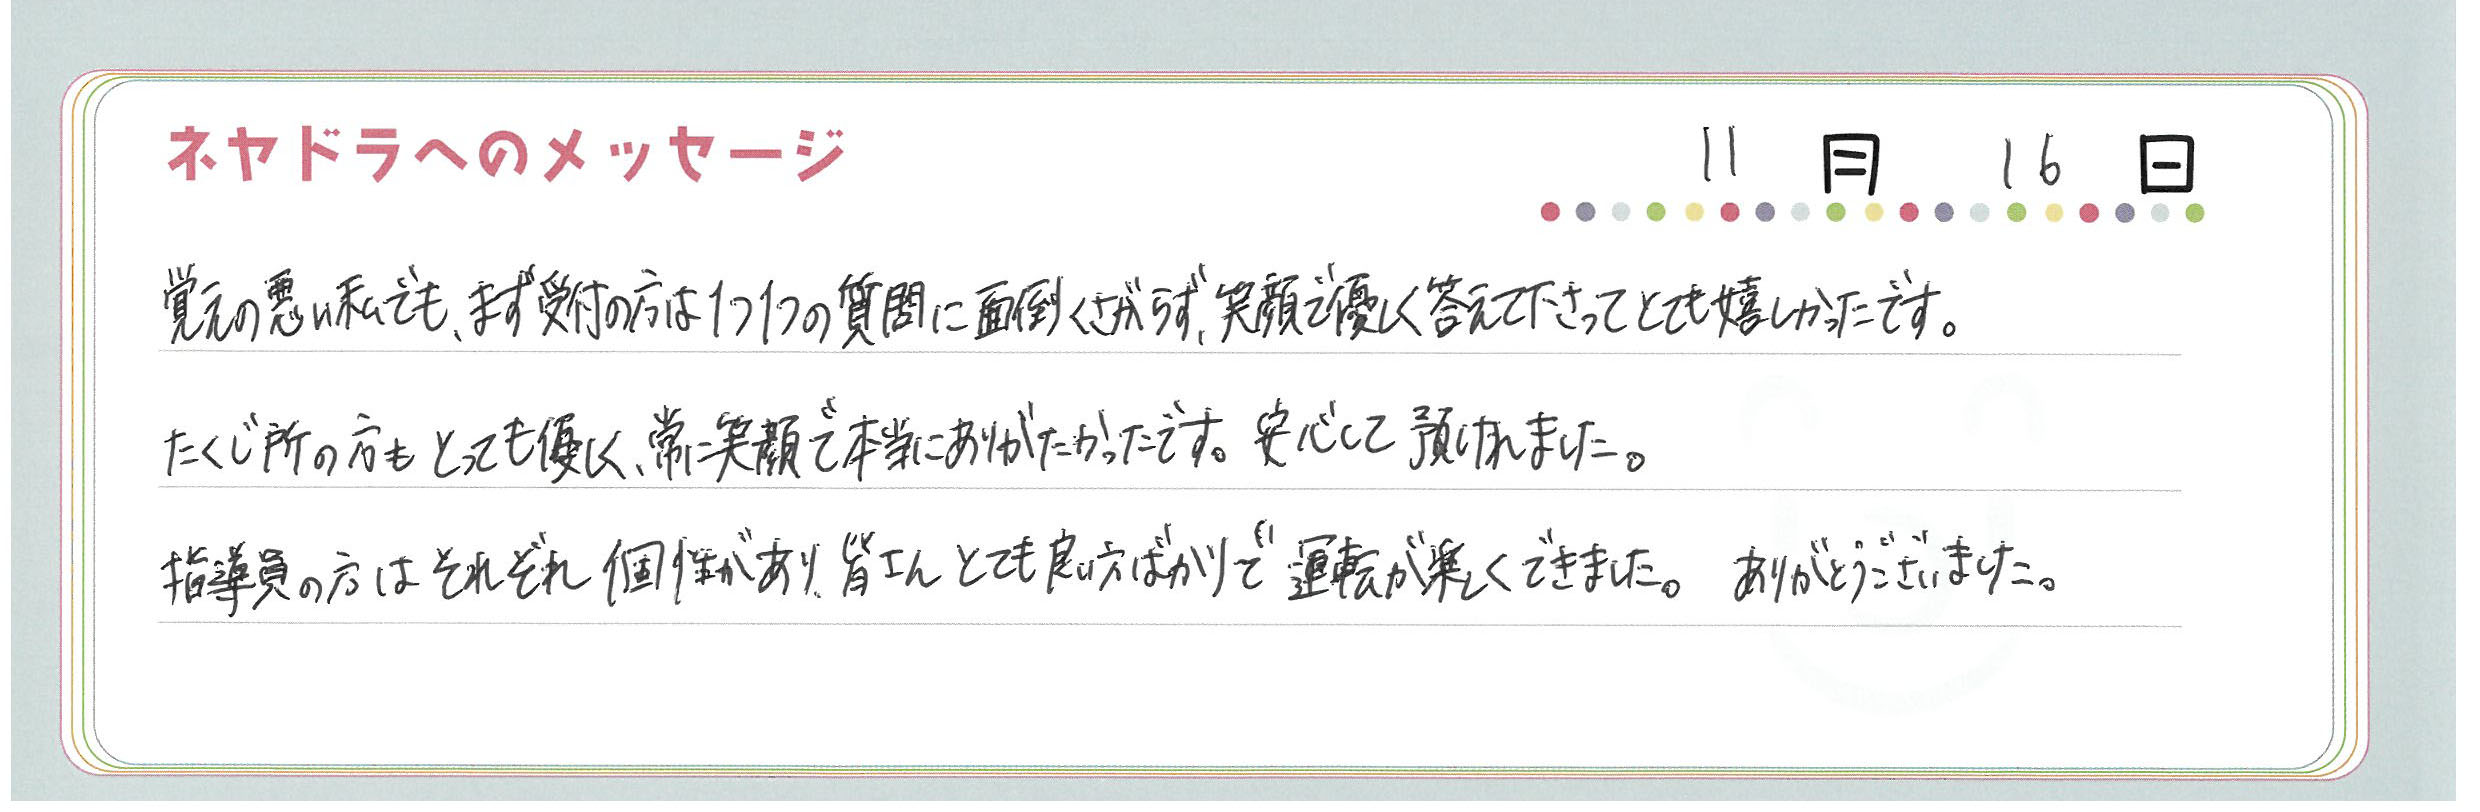 ネヤドラへのメッセージ
11月 16日
覚えの悪い私でも、まず受付の方は1つ1つの質問に面倒くさがらず、笑顔で優しく答えて下さってとても嬉しかったです。
たくじ所の方もとっても優しく、常に笑顔で本当にありがたかったです。安心して預けれました。
指導員の方はそれぞれ個性があり、皆さんとても良い方ばかりで運転が楽しくできました。 ありがとうございました。